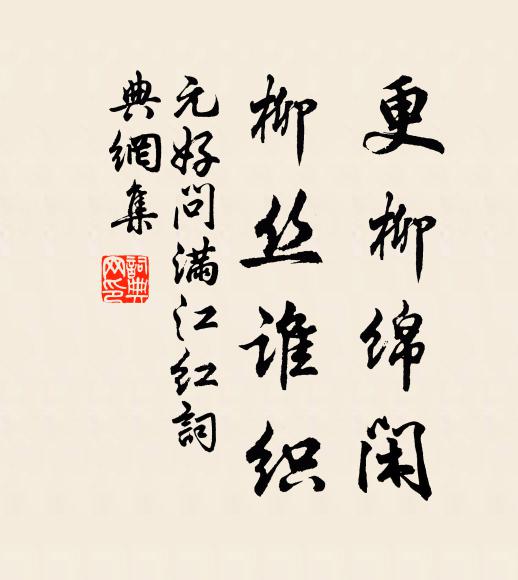 更柳绵闲
柳丝谁织
元好问满江红词
典網集
詞典網印